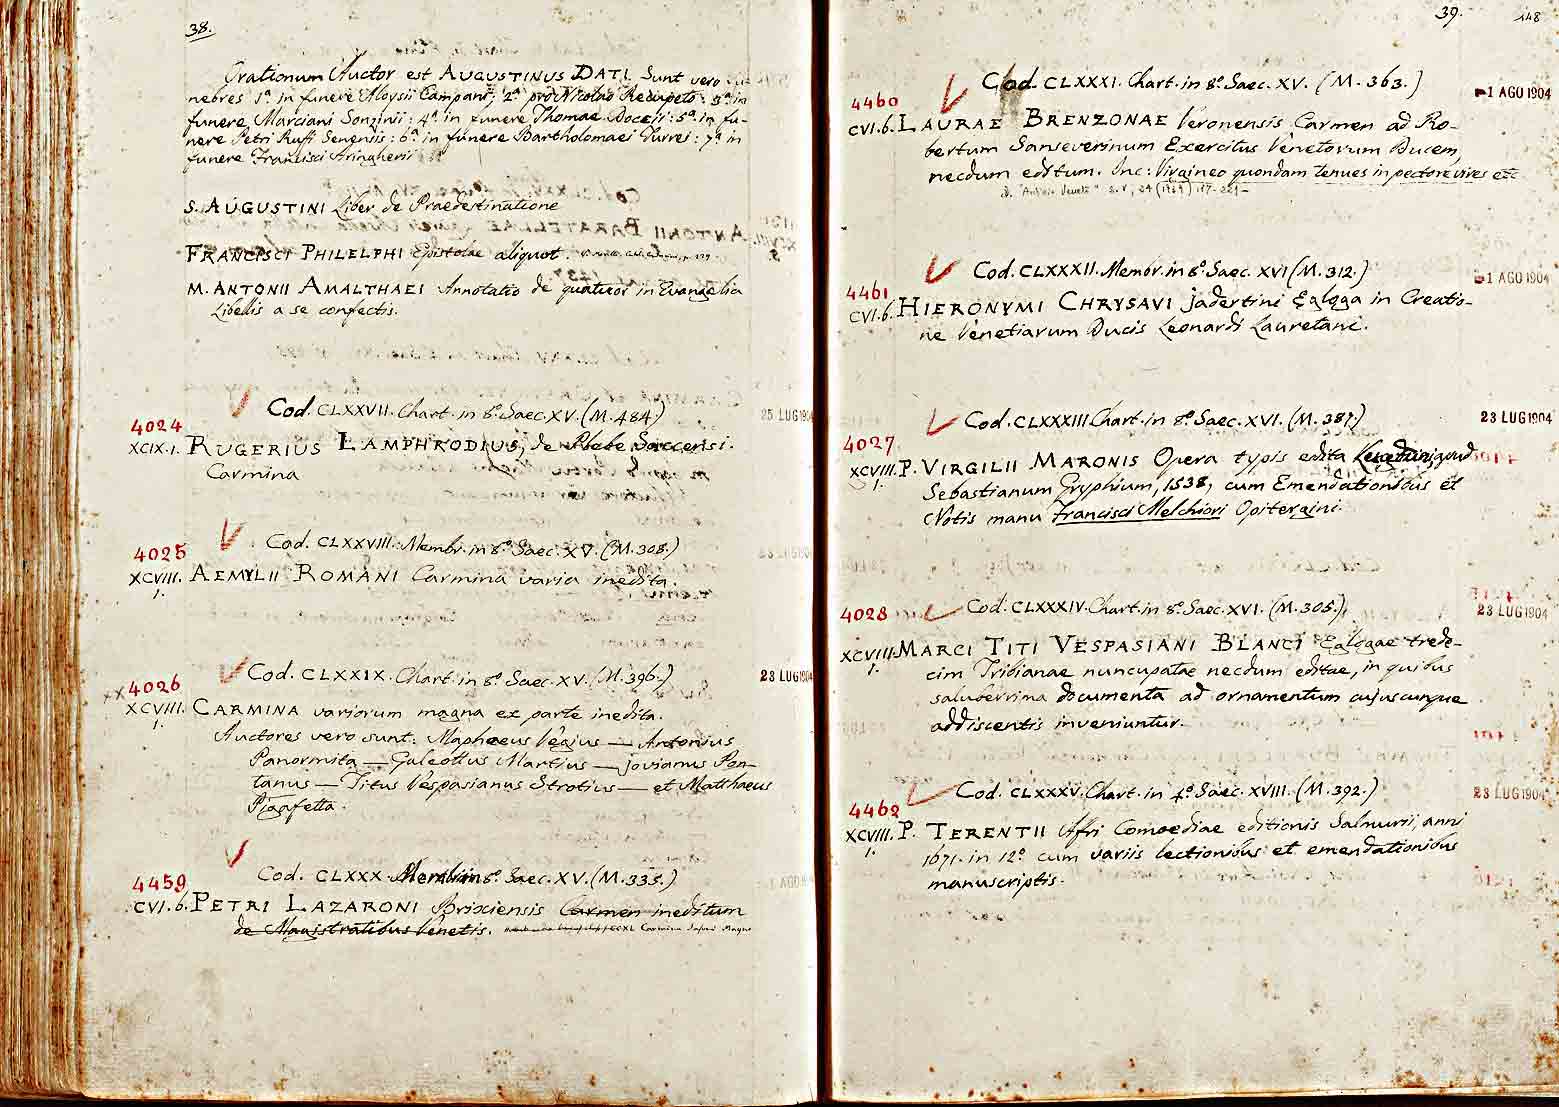 38.
Orationum Auctor est AUGUSTINUS DATI. Sunt vero
nebres 1ª in funere Aloysii Campani; 2ª pro Nicolao : 3ª in
funere Marciani Sonzinii: 4ª in funere Thomae Doccii: 5ª in fu-
nere Petri Ruffi : 6ª in funere Bartholomaei Turrei: 7ª in
funere Francisci Aringherii
S. AUGUSTINI Liber de Praedestinatione
FRANCISCI PHILELPHI Epistolae aliquot.
M. ANTONII AMALTHAEI Annotatio de quatuor in Evangelia
Libellis a se confectis.
Cod. CLXXVII. Chart. in 8º. Saec. XV. (M. 484.)
25 LUG 1904
4024
XCIX.1. RUGERIUS LAMPHRODIUS, de Plebe Saccensi.
Carmina
Cod. CLXXVIII. Membr. in 8º. Saec. XV. (M. 308.)
4025
XCVIII. AEMYLII ROMANI Carmina varia inedita.
1.
Cod. CLXXIX. Chart. in 8º. Saec. XV. (M. 396.)
23 LUG 1904
4026
XCVIII. CARMINA variorum magna ex parte inedita.
1.
Auctores vero sunt: Maphaeus Vegius — Antonius
Panormita — Galeottus Martius — Jovianus Pon-
tanus — Titus Vespasianus Strotius — et Matthaeus
Pigafetta.
Cod. CLXXX. Membr. in 8º. Saec. XV. (M. 335.)
1 AGO
4459
CVI.6. PETRI LAZARONI Brixiensis Carmen ineditum
de Magistratibus Venetis.
39.
148
Cod. CLXXXI. Chart. in 8º. Saec. XV. (M. 363.)
-1 AGO 1904
4460
CVI.6. LAURAE BRENZONAE Veronensis Carmen ad Ro-
bertum Sanseverinum Exercitus Venetorum Ducem,
necdum editum. Inc: Virgineo quondam tenues in pectore vires etc
Cod. CLXXXII. Membr. in 8º. Saec. XVI (M. 312.)
-1 AGO 1904
4461
CVI.6. HIERONYMI CHRYSAVI Jadertini Egloga in Creatio-
ne Venetiarum Ducis Leonardi Lauretani.
Cod. CLXXXIII. Chart. in 8º. Saec. XVI. (M. 387.)
23 LUG 1904
4027
XCVIII. P. VIRGILII MARONIS Opera typis edita Lugduni, apud
1.
Sebastianum Gryphium, 1538, cum Emendationibus et
Notis manu Francisci Melchiori Opitergini.
Cod. CLXXXIV. Chart. in 8º. Saec. XVI. (M. 305.)
23 LUG 1904
4028
XCVIII. MARCI TITI VESPASIANI BLANCI Eglogae trede-
1.
cim Tribianae nuncupatae necdum editae, in quibus
saluberrima documenta ad ornamentum cujuscunque
addiscentis inveniuntur.
Cod. CLXXXV. Chart. in 4º. Saec. XVIII. (M. 392.)
23 LUG 1904
4462
XCVIII. P. TERENTII Afri Comoediae editionis Salmurii, anni
1.
1671. in 12º. cum variis lectionibus et emendationibus
manuscriptis.